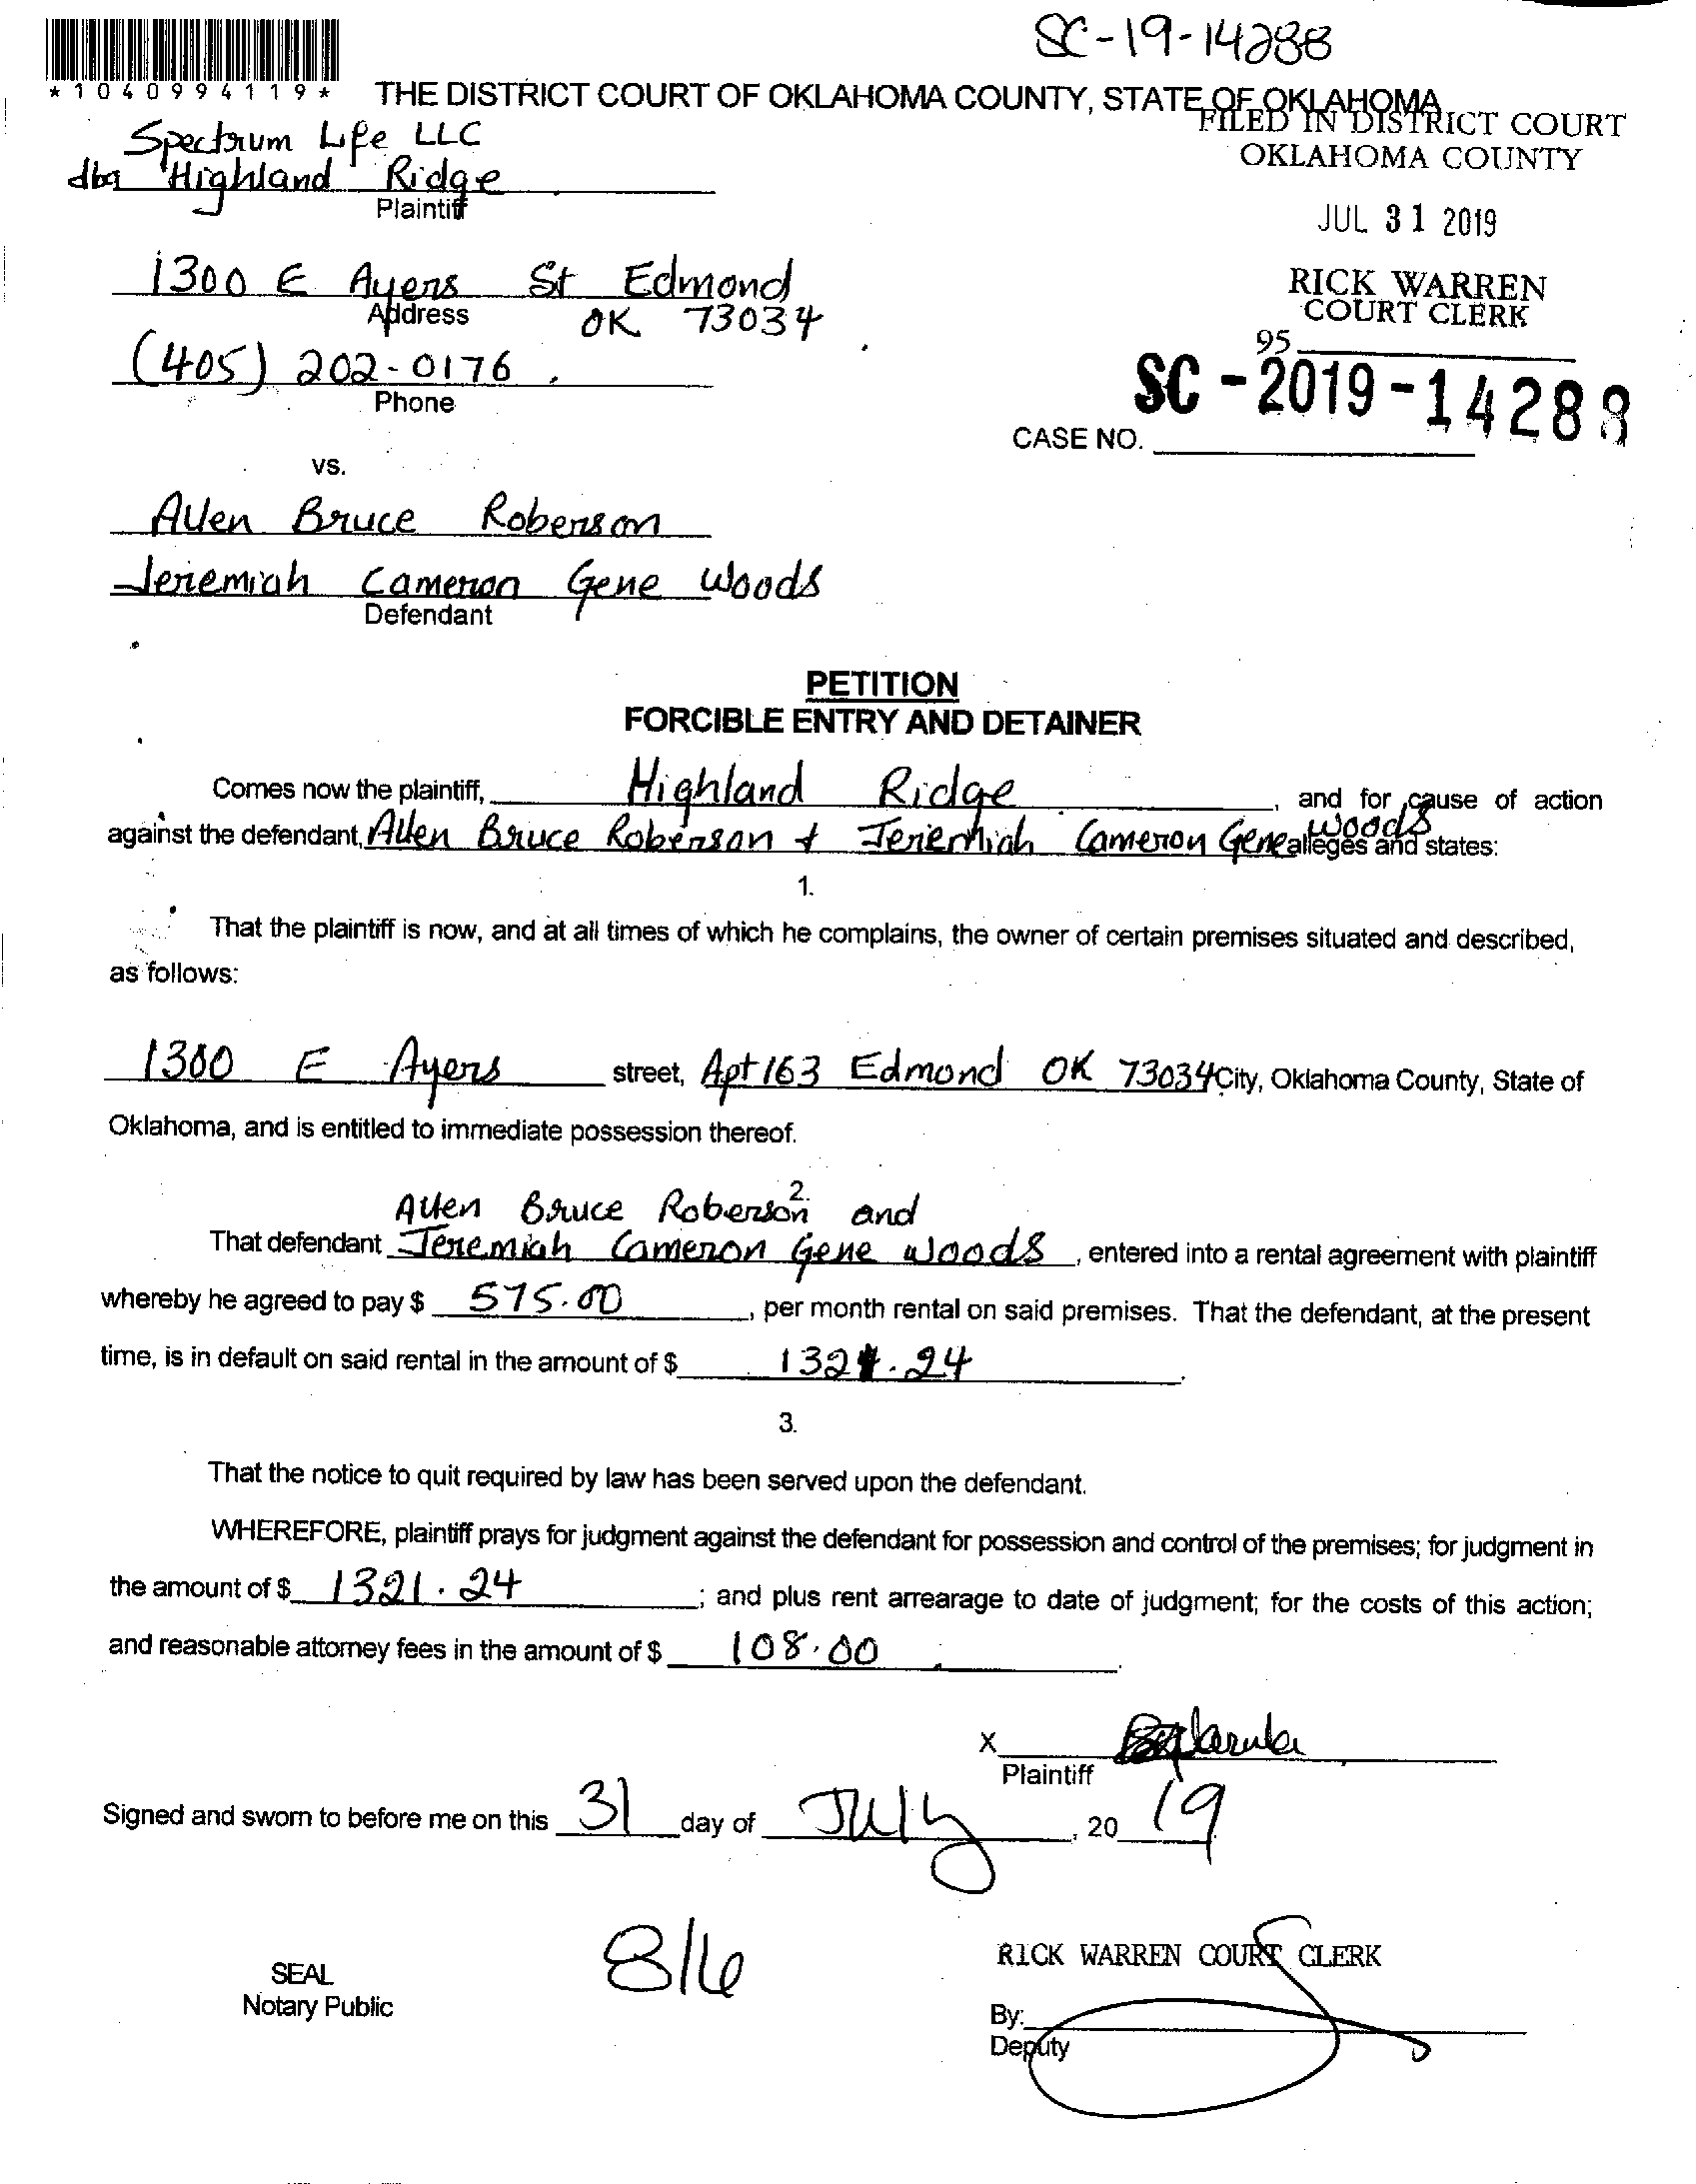 SC-19-14288
*1040994119*
THE DISTRICT COURT OF OKLAHOMA COUNTY, STATE OF OKLAHOMA
FILED IN DISTRICT COURT
OKLAHOMA COUNTY
Spectrum Life LLC
dba Highland Ridge
Plaintiff
JUL 31 2019
1300 E Ayers St Edmond
Address
OK 73034
RICK WARREN
COURT CLERK
95
(405) 202-0176
Phone
SC-2019-14288
CASE NO.
vs.
Allen Bruce Roberson
Jeremiah Cameron Gene Woods
Defendant
PETITION
FORCIBLE ENTRY AND DETAINER
Comes now the plaintiff, Highland Ridge, and for cause of action
against the defendant, Allen Bruce Roberson + Jeremiah Cameron Gene Woods alleges and states:
1.
That the plaintiff is now, and at all times of which he complains, the owner of certain premises situated and described,
as follows:
1300 E Ayers street, Apt 163 Edmond OK 73034 City, Oklahoma County, State of
Oklahoma, and is entitled to immediate possession thereof.
2.
Allen Bruce Roberson and
That defendant Jeremiah Cameron Gene Woods, entered into a rental agreement with plaintiff
whereby he agreed to pay $ 575.00, per month rental on said premises. That the defendant, at the present
time, is in default on said rental in the amount of $ 1321.24.
3.
That the notice to quit required by law has been served upon the defendant.
WHEREFORE, plaintiff prays for judgment against the defendant for possession and control of the premises; for judgment in
the amount of $ 1321.24; and plus rent arrearage to date of judgment; for the costs of this action;
and reasonable attorney fees in the amount of $ 108.00.
X
Plaintiff
Signed and sworn to before me on this 31 day of July, 2019
8/16
SEAL
Notary Public
RICK WARREN COURT CLERK
By:
Deputy